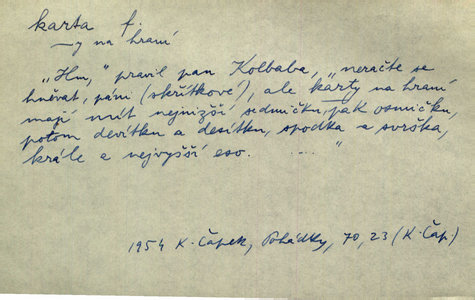 karta f.
—y na hraní
„Hm," pravil pan Kolbaba, „neračte se
hněvat, páni (skřítkové), ale karty na hraní
mají mít nejnižší sedmičku, pak osmičku,
potom devítku a desítku, spodka a svrška,
krále a nejvyšší eso. ...."
1954 K. Čapek, Pohádky, 70, 23 (K. Čap.)